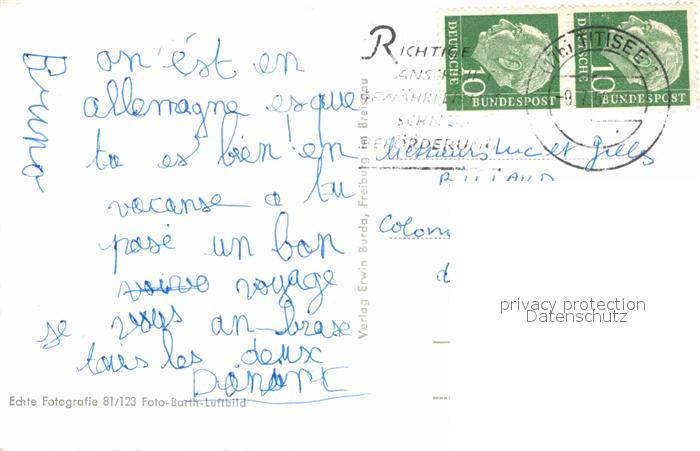 Bruno
on ést en
allemagne esque
tu es bien en
vacanse a tu
pasé un bon
voyage
je vous an brase
tous les deux
Echte Fotografie 81/123 Foto-Barth-Luftbild
Verlag Erwin Burda, Freiburg im Breisgau
RICHTIGE
ANSCHRIFT
GEWÄHRLEISTET
SCHNELLE
BEFÖRDERUNG
DEUTSCHE
10
BUNDESPOST
DEUTSCHE
10
BUNDESPOST
TITISEE
Messieurs Luc et Gilles
BILLAUD
Colom
privacy protection
Datenschutz